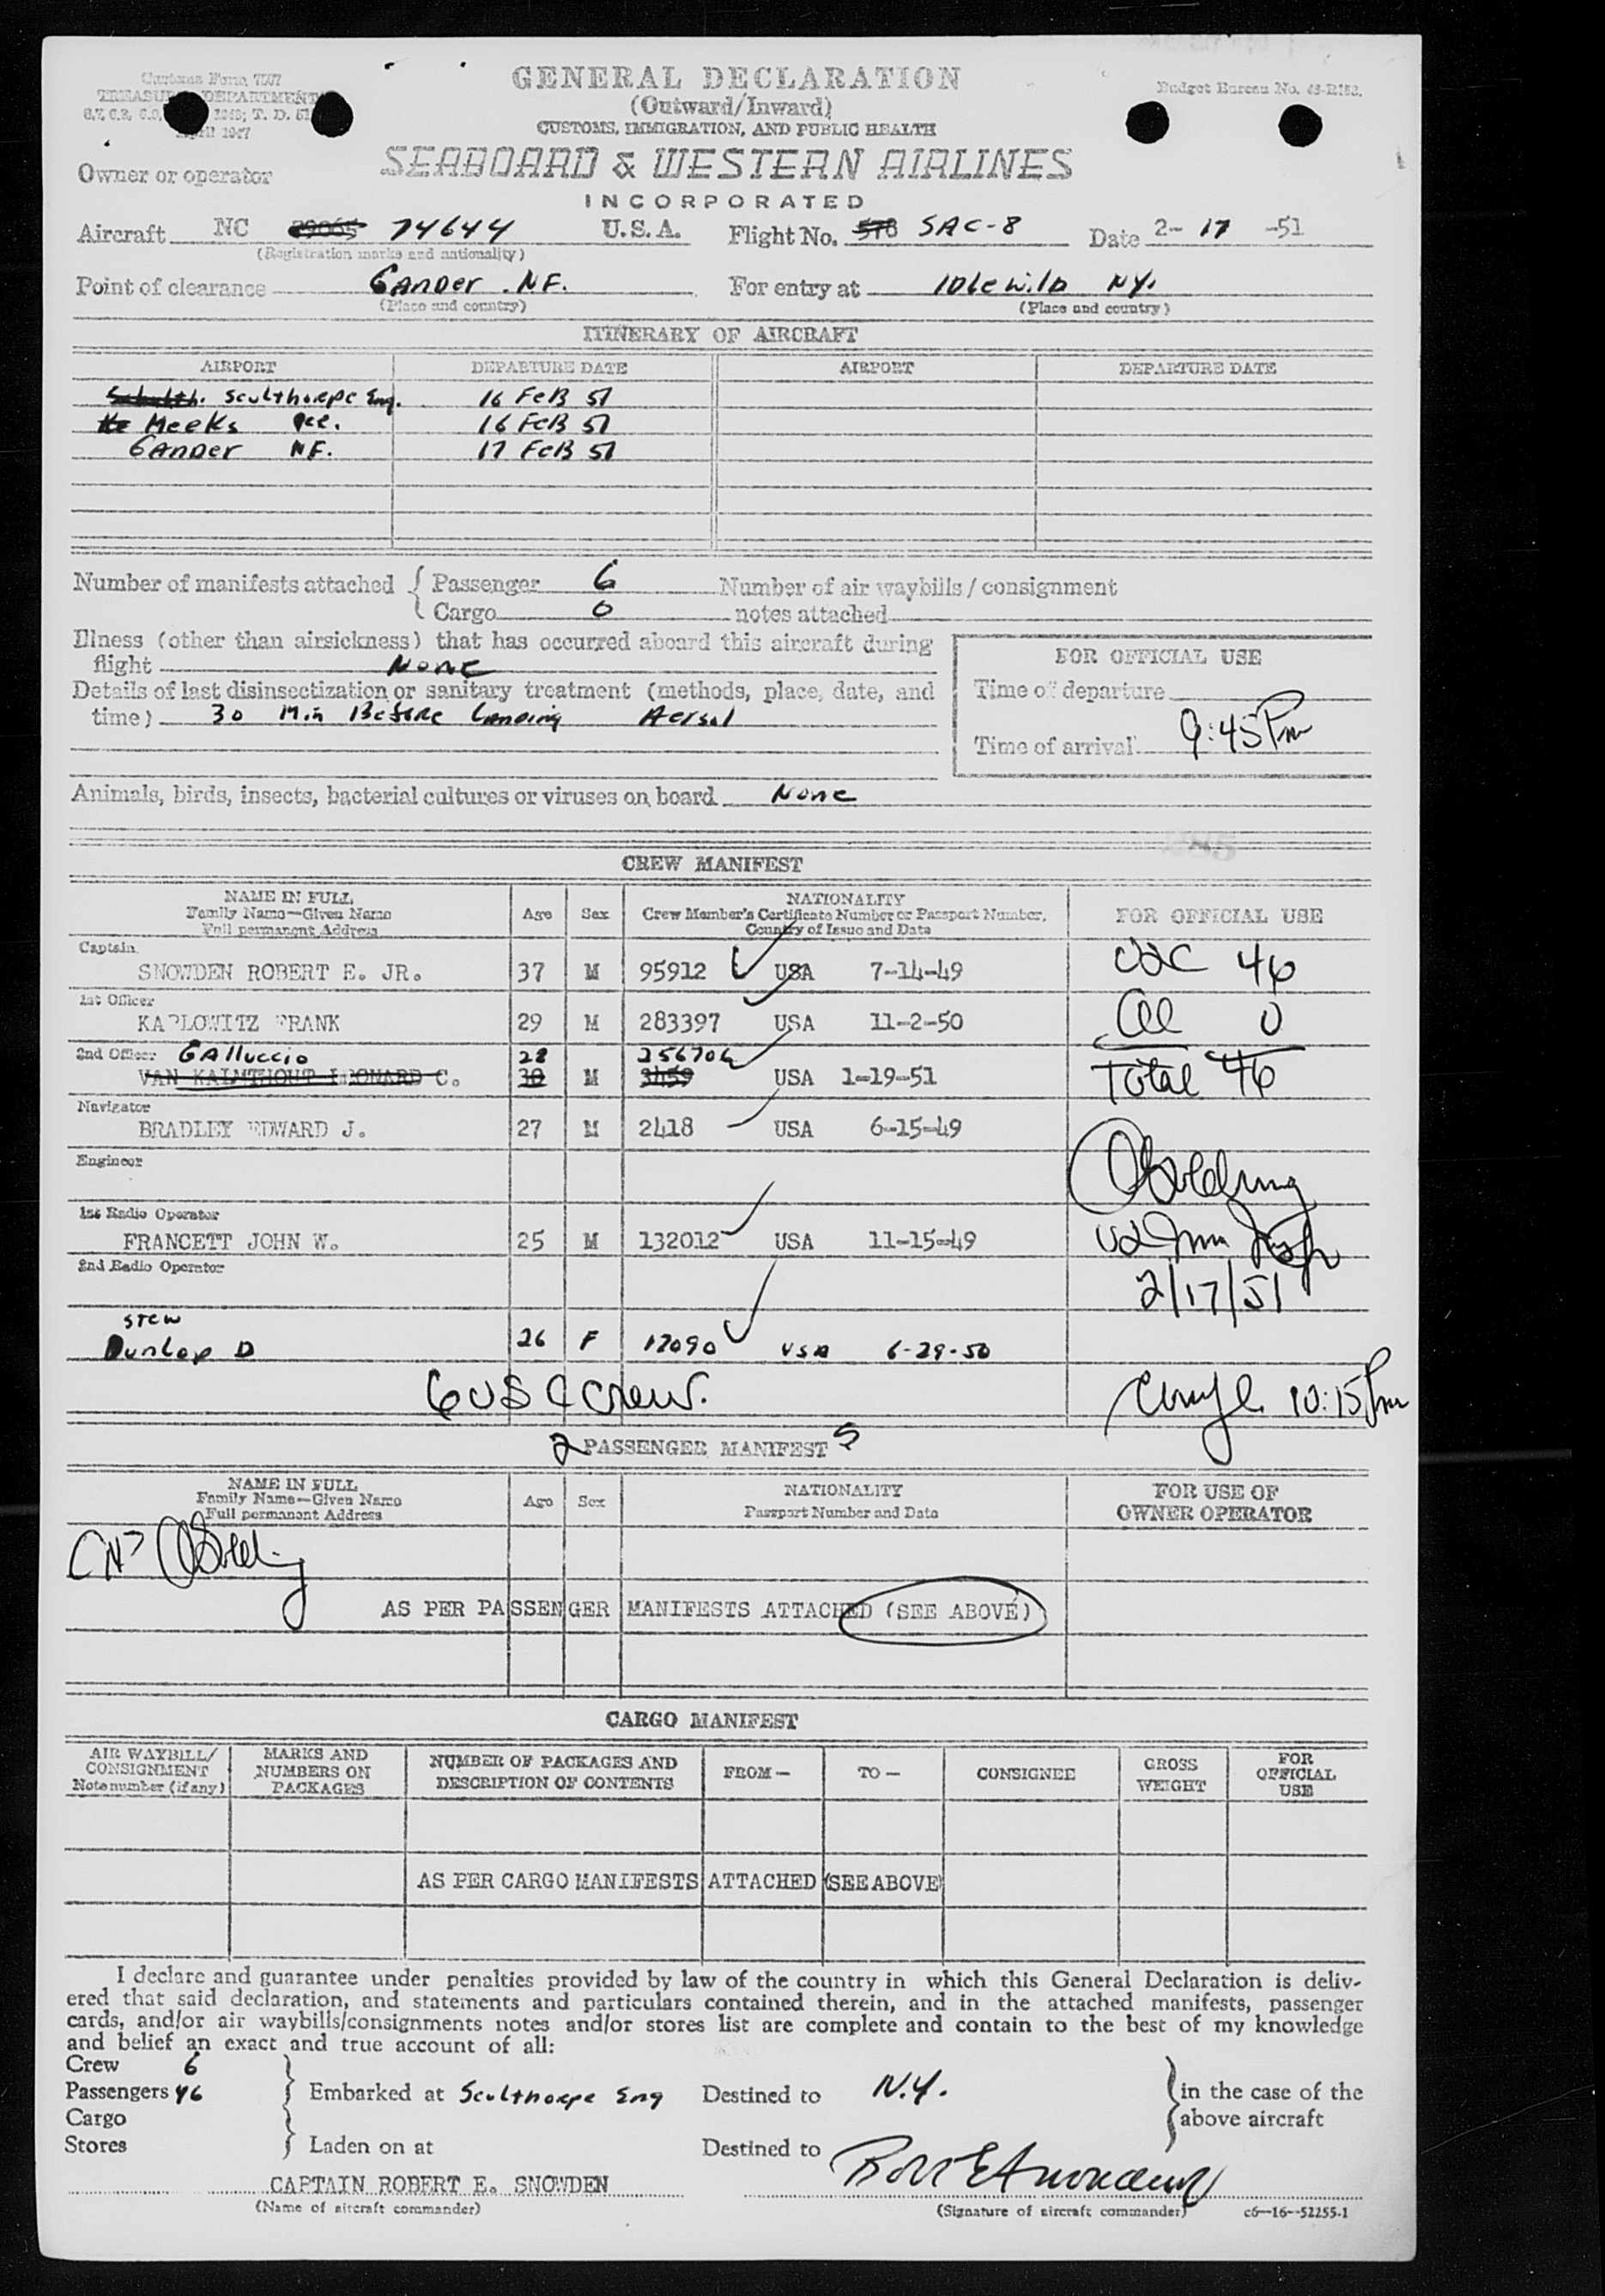 Customs Form 7507
TREASURY DEPARTMENT
April 1947
GENERAL DECLARATION
(Outward/Inward)
CUSTOMS, IMMIGRATION, AND PUBLIC HEALTH
Budget Bureau No.
Owner or operator
SEABOARD & WESTERN AIRLINES
INCORPORATED
Aircraft NC 74644 U.S.A. Flight No. 578 SAC-8 Date 2- 17 -51
(Registration marks and nationality)
Point of clearance Gander . NF. For entry at Idlewild NY.
(Place and country) (Place and country)
ITINERARY OF AIRCRAFT
AIRPORT DEPARTURE DATE AIRPORT DEPARTURE DATE
Sculthorpe Eng. 16 Feb 51
Meeks Ice. 16 Feb 51
Gander NF. 17 Feb 51
Number of manifests attached { Passenger 6 Number of air waybills / consignment
Cargo 0 notes attached
Illness (other than airsickness) that has occurred aboard this aircraft during
flight None
Details of last disinsectization or sanitary treatment (methods, place, date, and
time) 30 Min Before Landing Aersol
FOR OFFICIAL USE
Time of departure
Time of arrival 9:45 Pm
Animals, birds, insects, bacterial cultures or viruses on board None
CREW MANIFEST
NAME IN FULL
Family Name—Given Name
Full permanent Address
Age Sex
NATIONALITY
Crew Member's Certificate Number or Passport Number,
Country of Issue and Date
FOR OFFICIAL USE
Captain
SNOWDEN ROBERT E. JR. 37 M 95912 USA 7-14-49
USC 46
1st Officer
KAPLOWITZ FRANK 29 M 283397 USA 11-2-50
All 0
2nd Officer Galluccio 28 256706
VAN KALMTHOUT LEONARD C. 30 M 3459 USA 1-19-51
Total 46
Navigator
BRADLEY EDWARD J. 27 M 2418 USA 6-15-49
Engineer
1st Radio Operator
FRANCETT JOHN W. 25 M 132012 USA 11-15-49
US Imm Insp
2nd Radio Operator
2/17/51
Stew
Dunlop D 26 F 17090 USA 6-29-50
6 USC Crew. 10:15 Pm
2 PASSENGER MANIFEST S
NAME IN FULL
Family Name—Given Name
Full permanent Address
Age Sex
NATIONALITY
Passport Number and Date
FOR USE OF
OWNER OPERATOR
AS PER PASSENGER MANIFESTS ATTACHED (SEE ABOVE)
CARGO MANIFEST
AIR WAYBILL/
CONSIGNMENT
Note number (if any)
MARKS AND
NUMBERS ON
PACKAGES
NUMBER OF PACKAGES AND
DESCRIPTION OF CONTENTS
FROM —
TO —
CONSIGNEE
GROSS
WEIGHT
FOR
OFFICIAL
USE
AS PER CARGO MANIFESTS ATTACHED (SEE ABOVE)
I declare and guarantee under penalties provided by law of the country in which this General Declaration is deliv-
ered that said declaration, and statements and particulars contained therein, and in the attached manifests, passenger
cards, and/or air waybills/consignments notes and/or stores list are complete and contain to the best of my knowledge
and belief an exact and true account of all:
Crew 6
Passengers 46 Embarked at Sculthorpe Eng Destined to N.Y. in the case of the
Cargo above aircraft
Stores Laden on at Destined to
CAPTAIN ROBERT E. SNOWDEN
(Name of aircraft commander) (Signature of aircraft commander) c6—16—52255-1